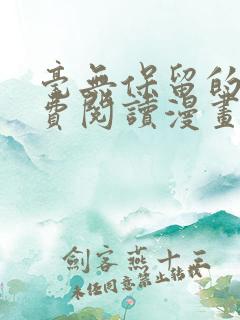 毫無保留的
費閱讀漫畫
劍客燕十三
未經同意禁止轉載